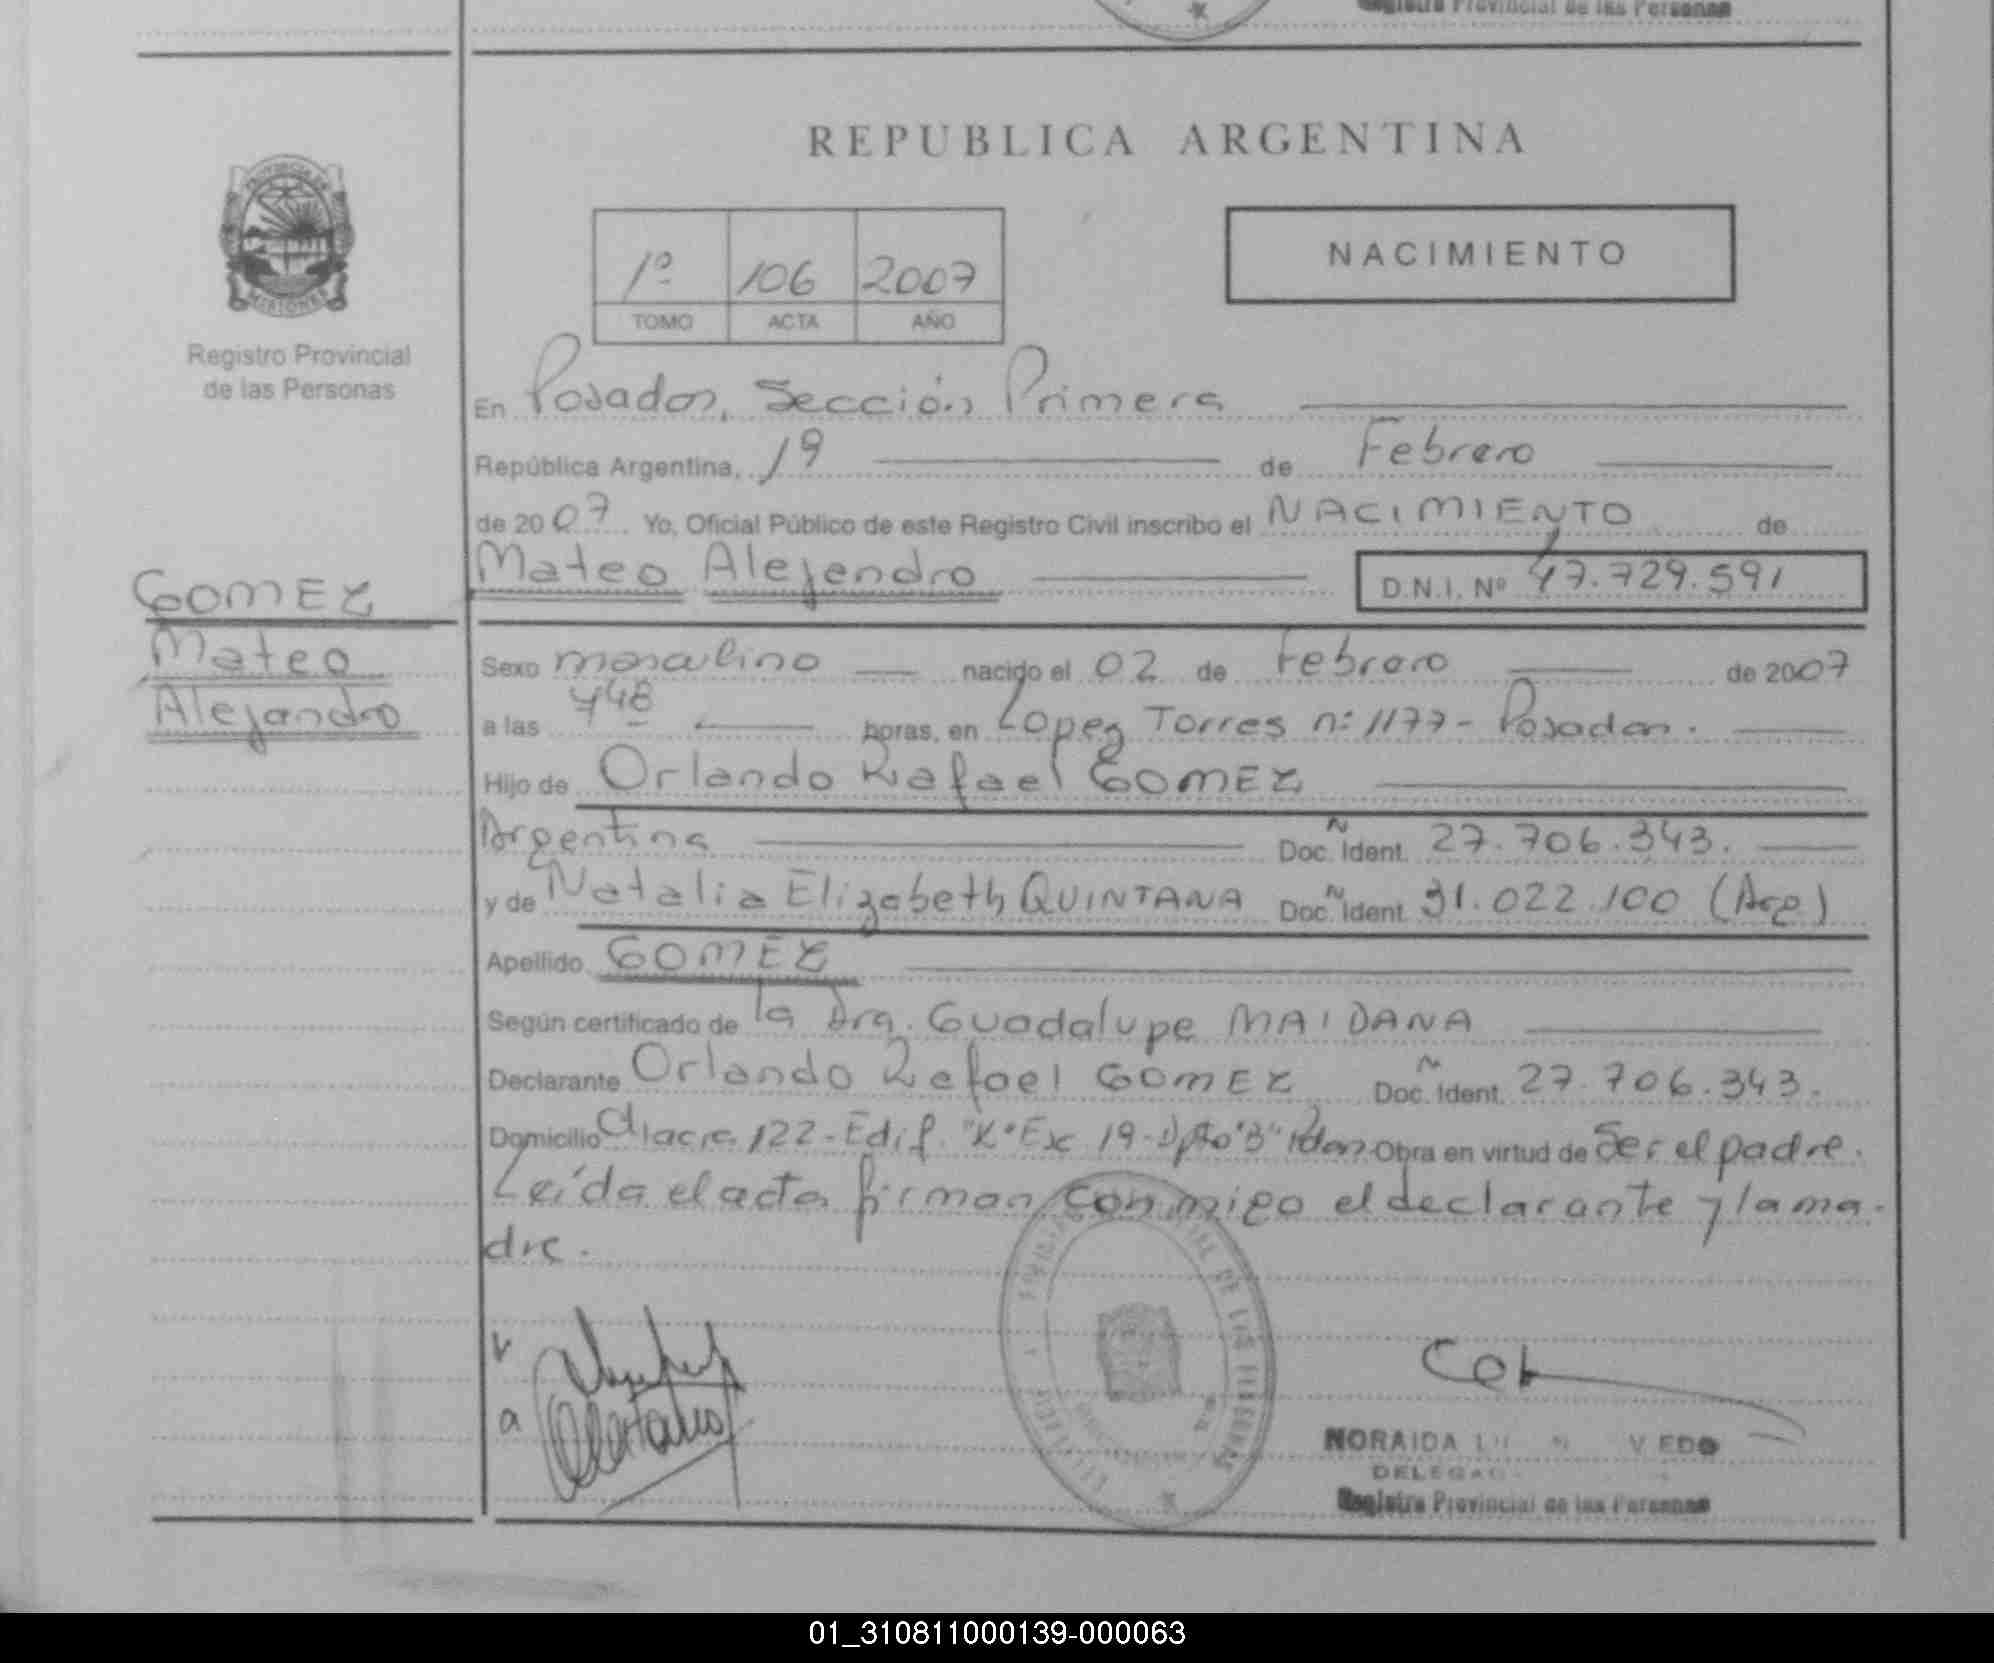 Registro Provincial de las Personas
REPUBLICA ARGENTINA
NACIMIENTO
1º 106 2007
TOMO ACTA AÑO
PROVINCIA DE
MISIONES
Registro Provincial
de las Personas
GOMEZ
Mateo
Alejandro
En Posadas, Sección Primera
República Argentina, 19 de Febrero
de 2007 Yo, Oficial Público de este Registro Civil inscribo el NACIMIENTO de
Mateo Alejandro D.N.I. Nº 47.729.591
Sexo masculino nacido el 02 de Febrero de 2007
a las 448 horas, en Lopez Torres nº 1177 - Posadas.
Hijo de Orlando Rafael GOMEZ
Argentina Doc. Ident. 27.706.343.
y de Natalia Elizabeth QUINTANA Doc. Ident. 31.022.100 (Arg)
Apellido GOMEZ
Según certificado de la Dra. Guadalupe MAIDANA
Declarante Orlando Rafael GOMEZ Doc. Ident. 27.706.343.
Domicilio 122 - Edif. "K" Esc 19 - Dpto "B" Pdas Obra en virtud de Ser el padre.
Leída el acta firman conmigo el declarante y la ma-
dre.
NORAIDA
Registro Provincial de las Personas
01_310811000139-000063